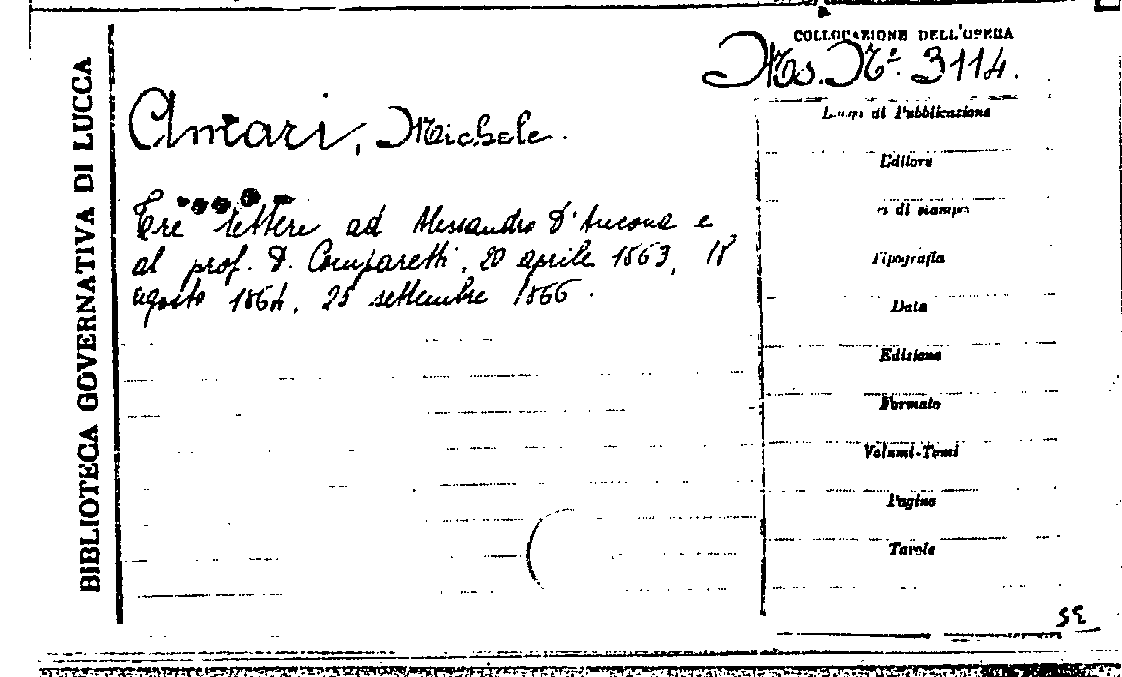 BIBLIOTECA GOVERNATIVA DI LUCCA
COLLOCAZIONE DELL'OPERA
Ms. Nº. 3114.
Amari, Michele.
Tre lettere ad Alessandro D'Ancona e
al prof. D. Comparetti, 20 aprile 1863, 18
agosto 1864, 25 settembre 1866.
Luogo di Pubblicazione
Editore
di stampa
Tipografia
Data
Edizione
Formato
Volumi-Tomi
Pagine
Tavole